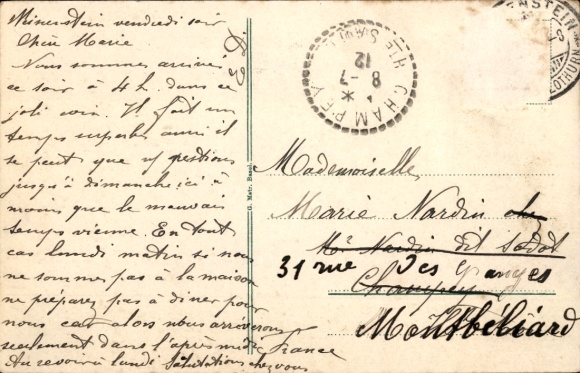 Minerstein vendredi soir
Chère Marie
Nous sommes arrivés
ce soir à 4 h. dans ce
joli coin. Il fait un
temps superbe aussi il
se peut que ns restions
jusqu'à dimanche ici à
moins que le mauvais
temps vienne. En tout
cas lundi matin si nous
ne sommes pas à la maison
ne préparez pas à diner pour
nous car alors nous arriverons
seulement dans l'après midi
Au revoir à lundi Salutations chez vous
G. Metz, Basel.
CHAMPEY
HTE SAÔNE
8 - 7
12
Mademoiselle
Marie Nardin chez
Mr Nardin dit Sodot
31 rue des Granges
Champey
Montbéliard
France